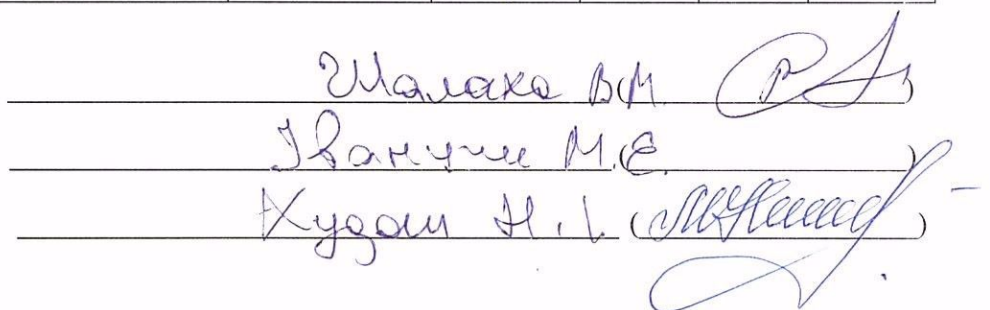 Шалака В.М. ( )
Іванучи М.Е. ( )
Худаш Н.І. ( )